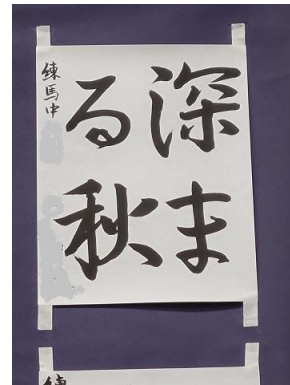 深ま
る秋
練馬中
練